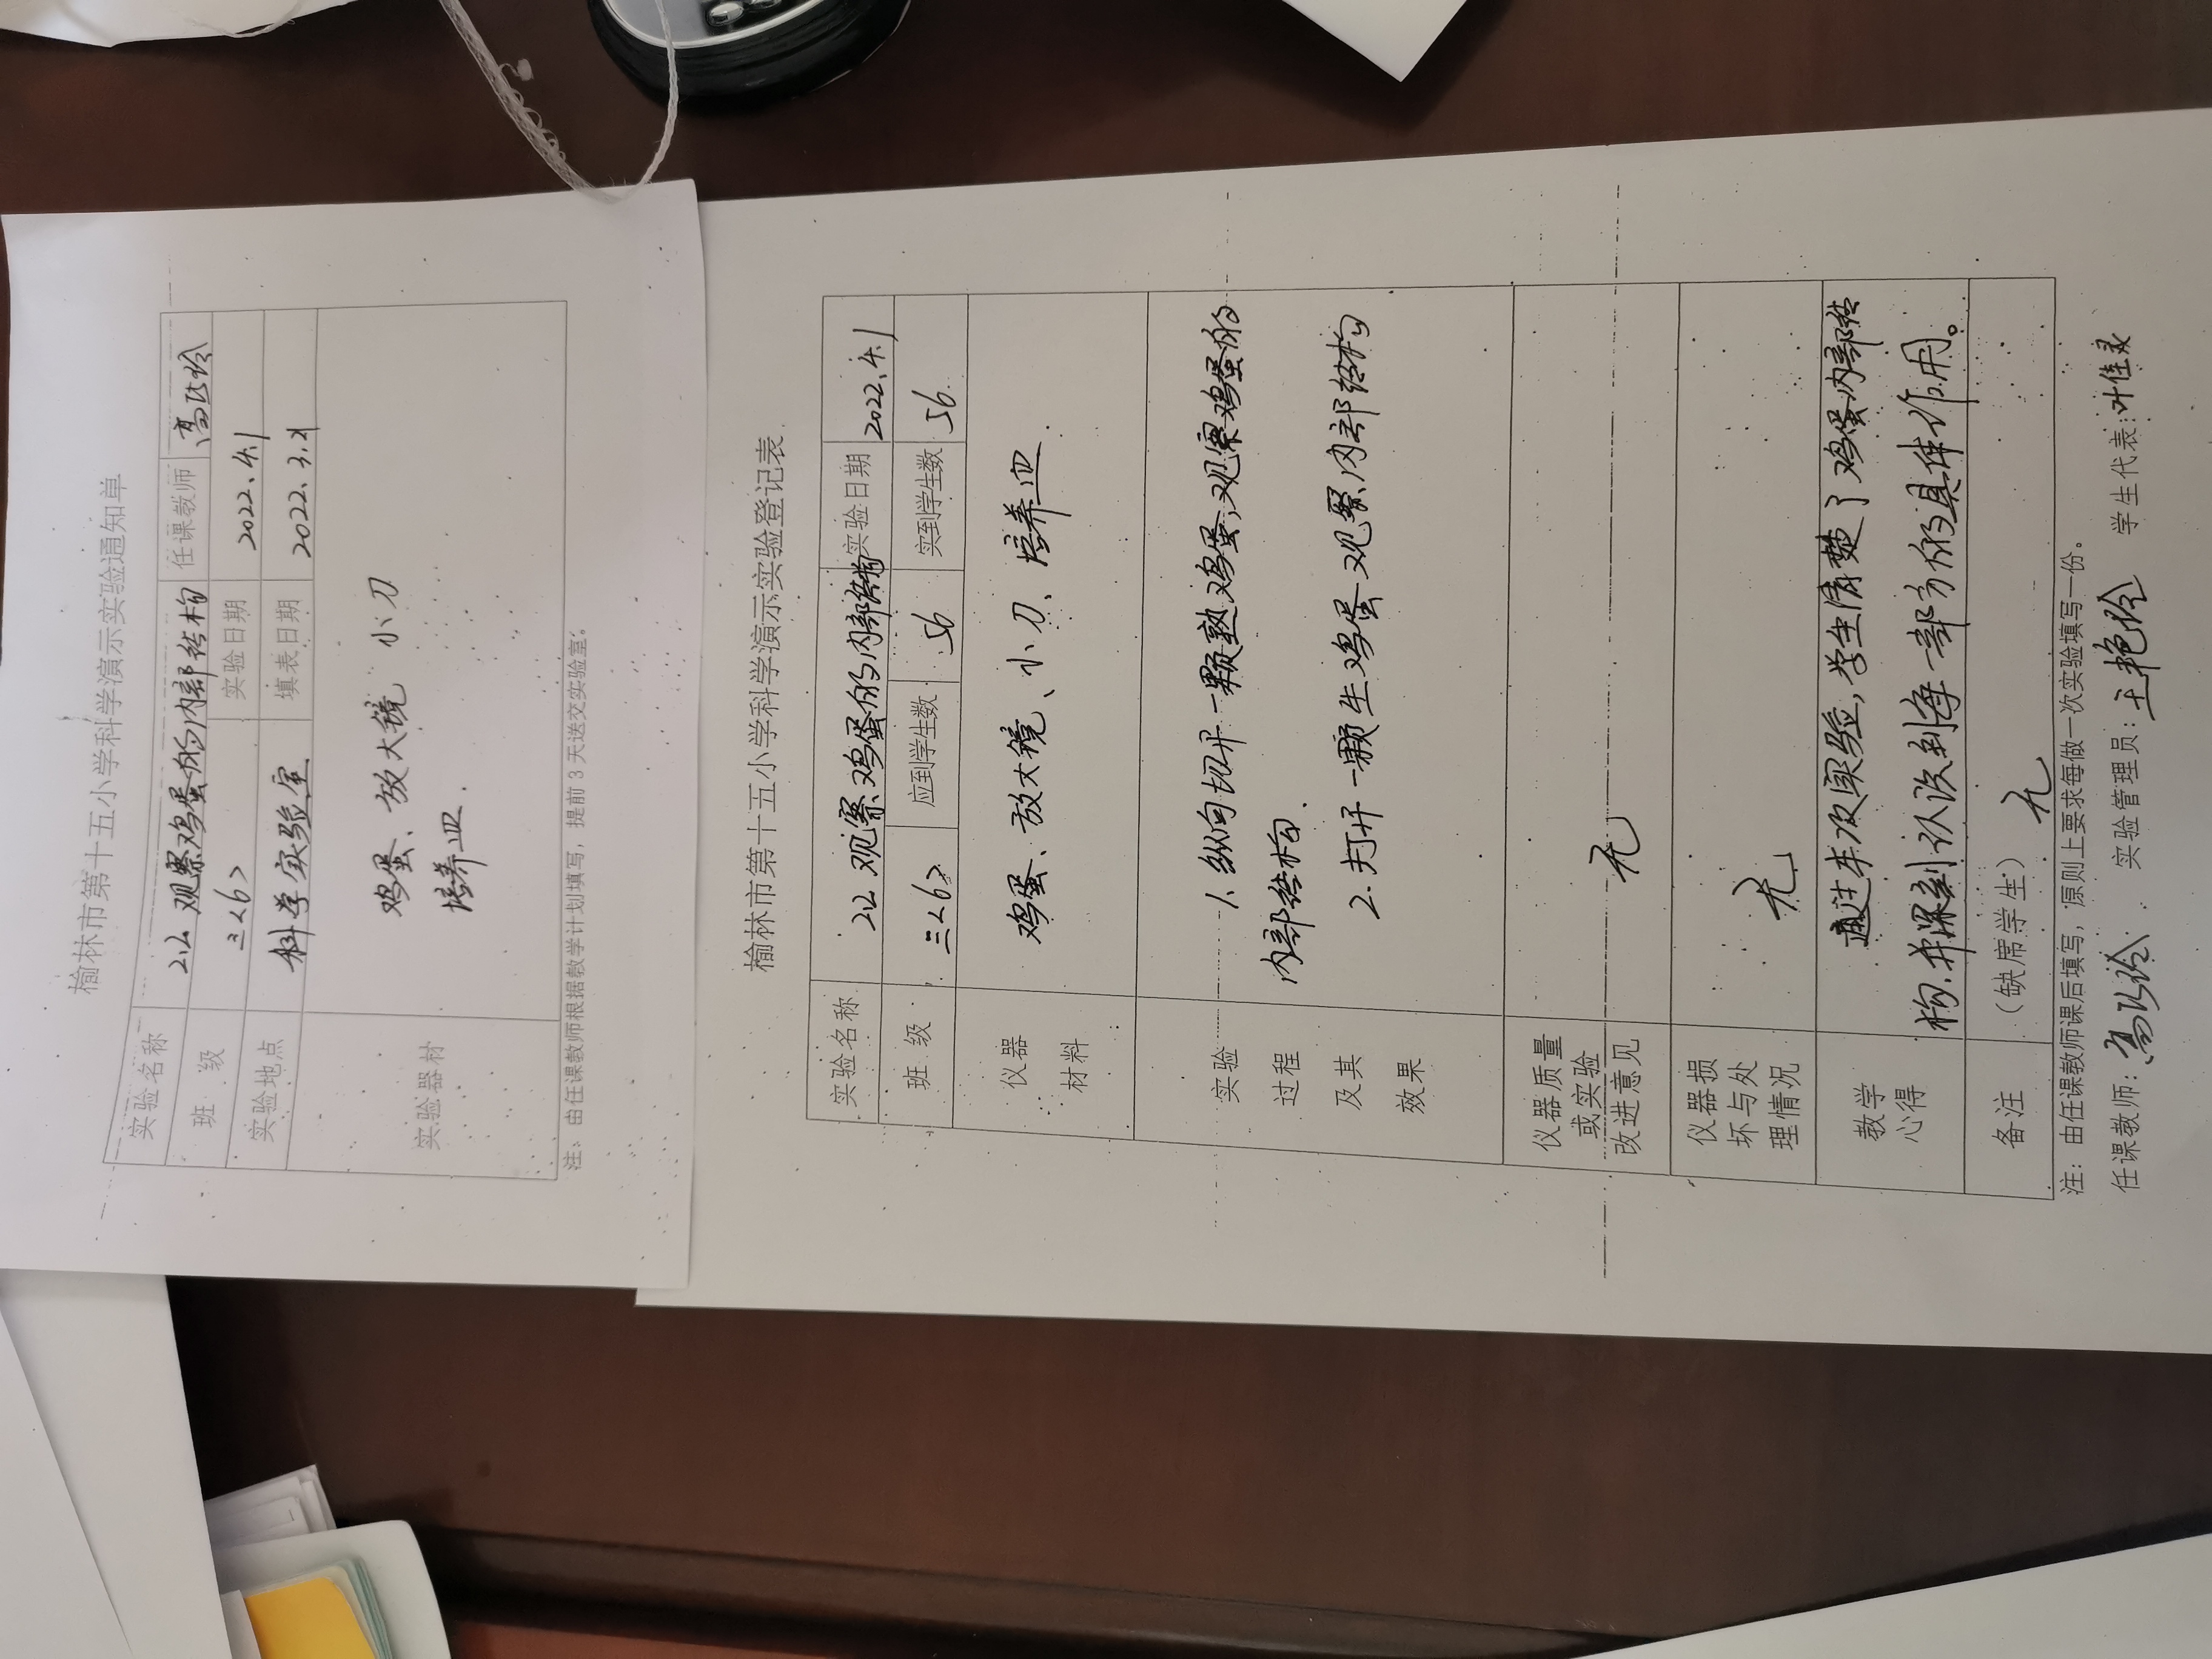 榆林市第十五小学科学演示实验通知单
实验名称 2.2 观察鸡蛋的内部结构 任课教师 高
班 级 三<6> 实验日期 2022.4.1
实验地点 科学实验室 填表日期 2022.3.
实验器材 鸡蛋、放大镜 小刀
培养皿.
注：由任课教师根据教学计划填写，提前 3 天送交实验室。
榆林市第十五小学科学演示实验登记表
实验名称 2.2 观察鸡蛋的内部结构 实验日期 2022.4.1
班 级 三<6> 应到学生数 56 实到学生数 56
仪器
材料
鸡蛋、放大镜、小刀、培养皿.
实验
过程
及其
效果
1.纵向切开一颗熟鸡蛋，观察鸡蛋的
内部结构.
2.打开一颗生鸡蛋观察内部结构
仪器质量
或实验
改进意见
无
仪器损
坏与处
理情况
无
教学
心得
通过本次实验，学生清楚了鸡蛋内部结
构.并深刻认识到每一部分的具体作用。
备注 （缺席学生） 无
注：由任课教师课后填写，原则上要求每做一次实验填写一份。
任课教师：高 实验管理员：王艳玲 学生代表：叶佳灵